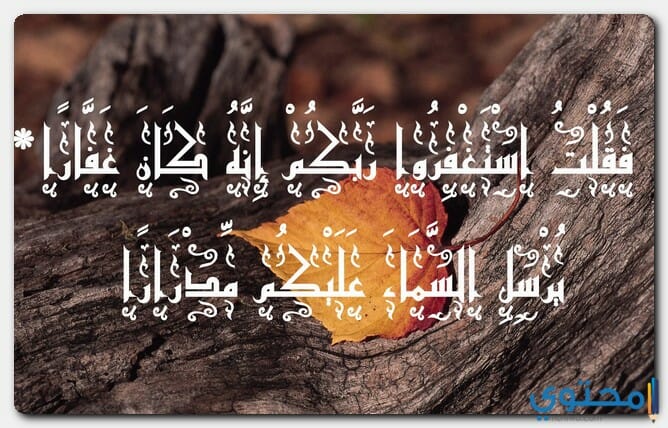 فَقُلْتُ اسْتَغْفِرُوا رَبَّكُمْ إِنَّهُ كَانَ غَفَّارًا *
يُرْسِلِ السَّمَاءَ عَلَيْكُم مِّدْرَارًا
محتوي